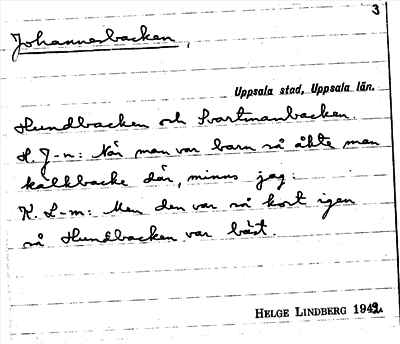 3
Johannesbacken,
Uppsala stad, Uppsala län.
Hundbacken och Svartmanbacken.
H. J-n: När man var barn så åkte man
kälkbacke där, minns jag.
K. L-m: Men den var så kort igen
så Hundbacken var bäst.
HELGE LINDBERG 1942.